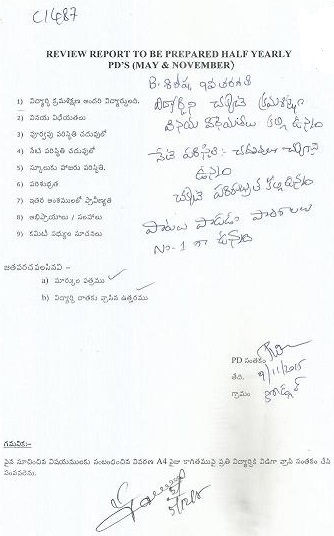 C1487
REVIEW REPORT TO BE PREPARED HALF YEARLY
PD'S (MAY & NOVEMBER)
B. శిరీష, 9వ తరగతి
1) విద్యార్థి క్రమశిక్షణ అందరి విద్యార్థులది.
విద్యార్థిని చక్కటి క్రమశిక్షణ
2) వినయ విధేయతలు
వినయ విధేయతలు కల్గి ఉన్నది
3) పూర్వపు పరిస్థితి చదువులో
4) నేటి పరిస్థితి చదువులో
నేటి పరిస్థితి: చదువులో
5) స్కూలుకు హాజరు పరిస్థితి.
ఉన్నది
6) పరిశుభ్రత
చక్కటి పరిశుభ్రత కల్గి ఉన్నది
7) ఇతర అంశములలో ప్రావీణ్యత
8) అభిప్రాయాలు / సలహాలు
పాటలు పాడడం పాఠశాలలు
9) కమిటీ సభ్యుల సూచనలు
No-1 గా ఉన్నది
జతపరచవలసినవి :-
a) మార్కుల పత్రము
b) విద్యార్థి దాతకు వ్రాసిన ఉత్తరము
PD సంతకం
తేది. 9/11/2015
గ్రామం
గమనిక:-
పైన సూచించిన విషయములకు సంబంధించిన వివరణ A4 సైజు కాగితముపై ప్రతి విద్యార్థికి విడిగా వ్రాసి సంతకం చేసి
పంపవలెను.